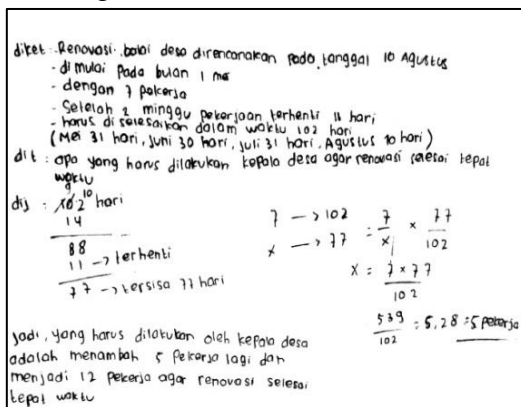 diket : Renovasi balai desa direncanakan pada tanggal 10 Agustus
- di mulai Pada bulan 1 mei
- dengan 7 pekerja
- Setelah 2 minggu pekerjaan terhenti 11 hari
- harus di selesaikan dalam waktu 102 hari
(Mei 31 hari, Juni 30 hari, Juli 31 hari, Agustus 10 hari)
dit : apa yang harus dilakukan kepala desa agar renovasi selesai tepat
waktu
dij : 102 10 hari
14
88
11 -> terhenti
77 -> tersisa 77 hari
7 -> 102
x -> 77
= 7/x × 77/102
x = 7 × 77 / 102
539/102 = 5,28 = 5 pekerja
Jadi, yang harus dilakukan oleh kepala desa
adalah menambah 5 Pekerja lagi dan
menjadi 12 pekerja agar renovasi selesai
tepat waktu